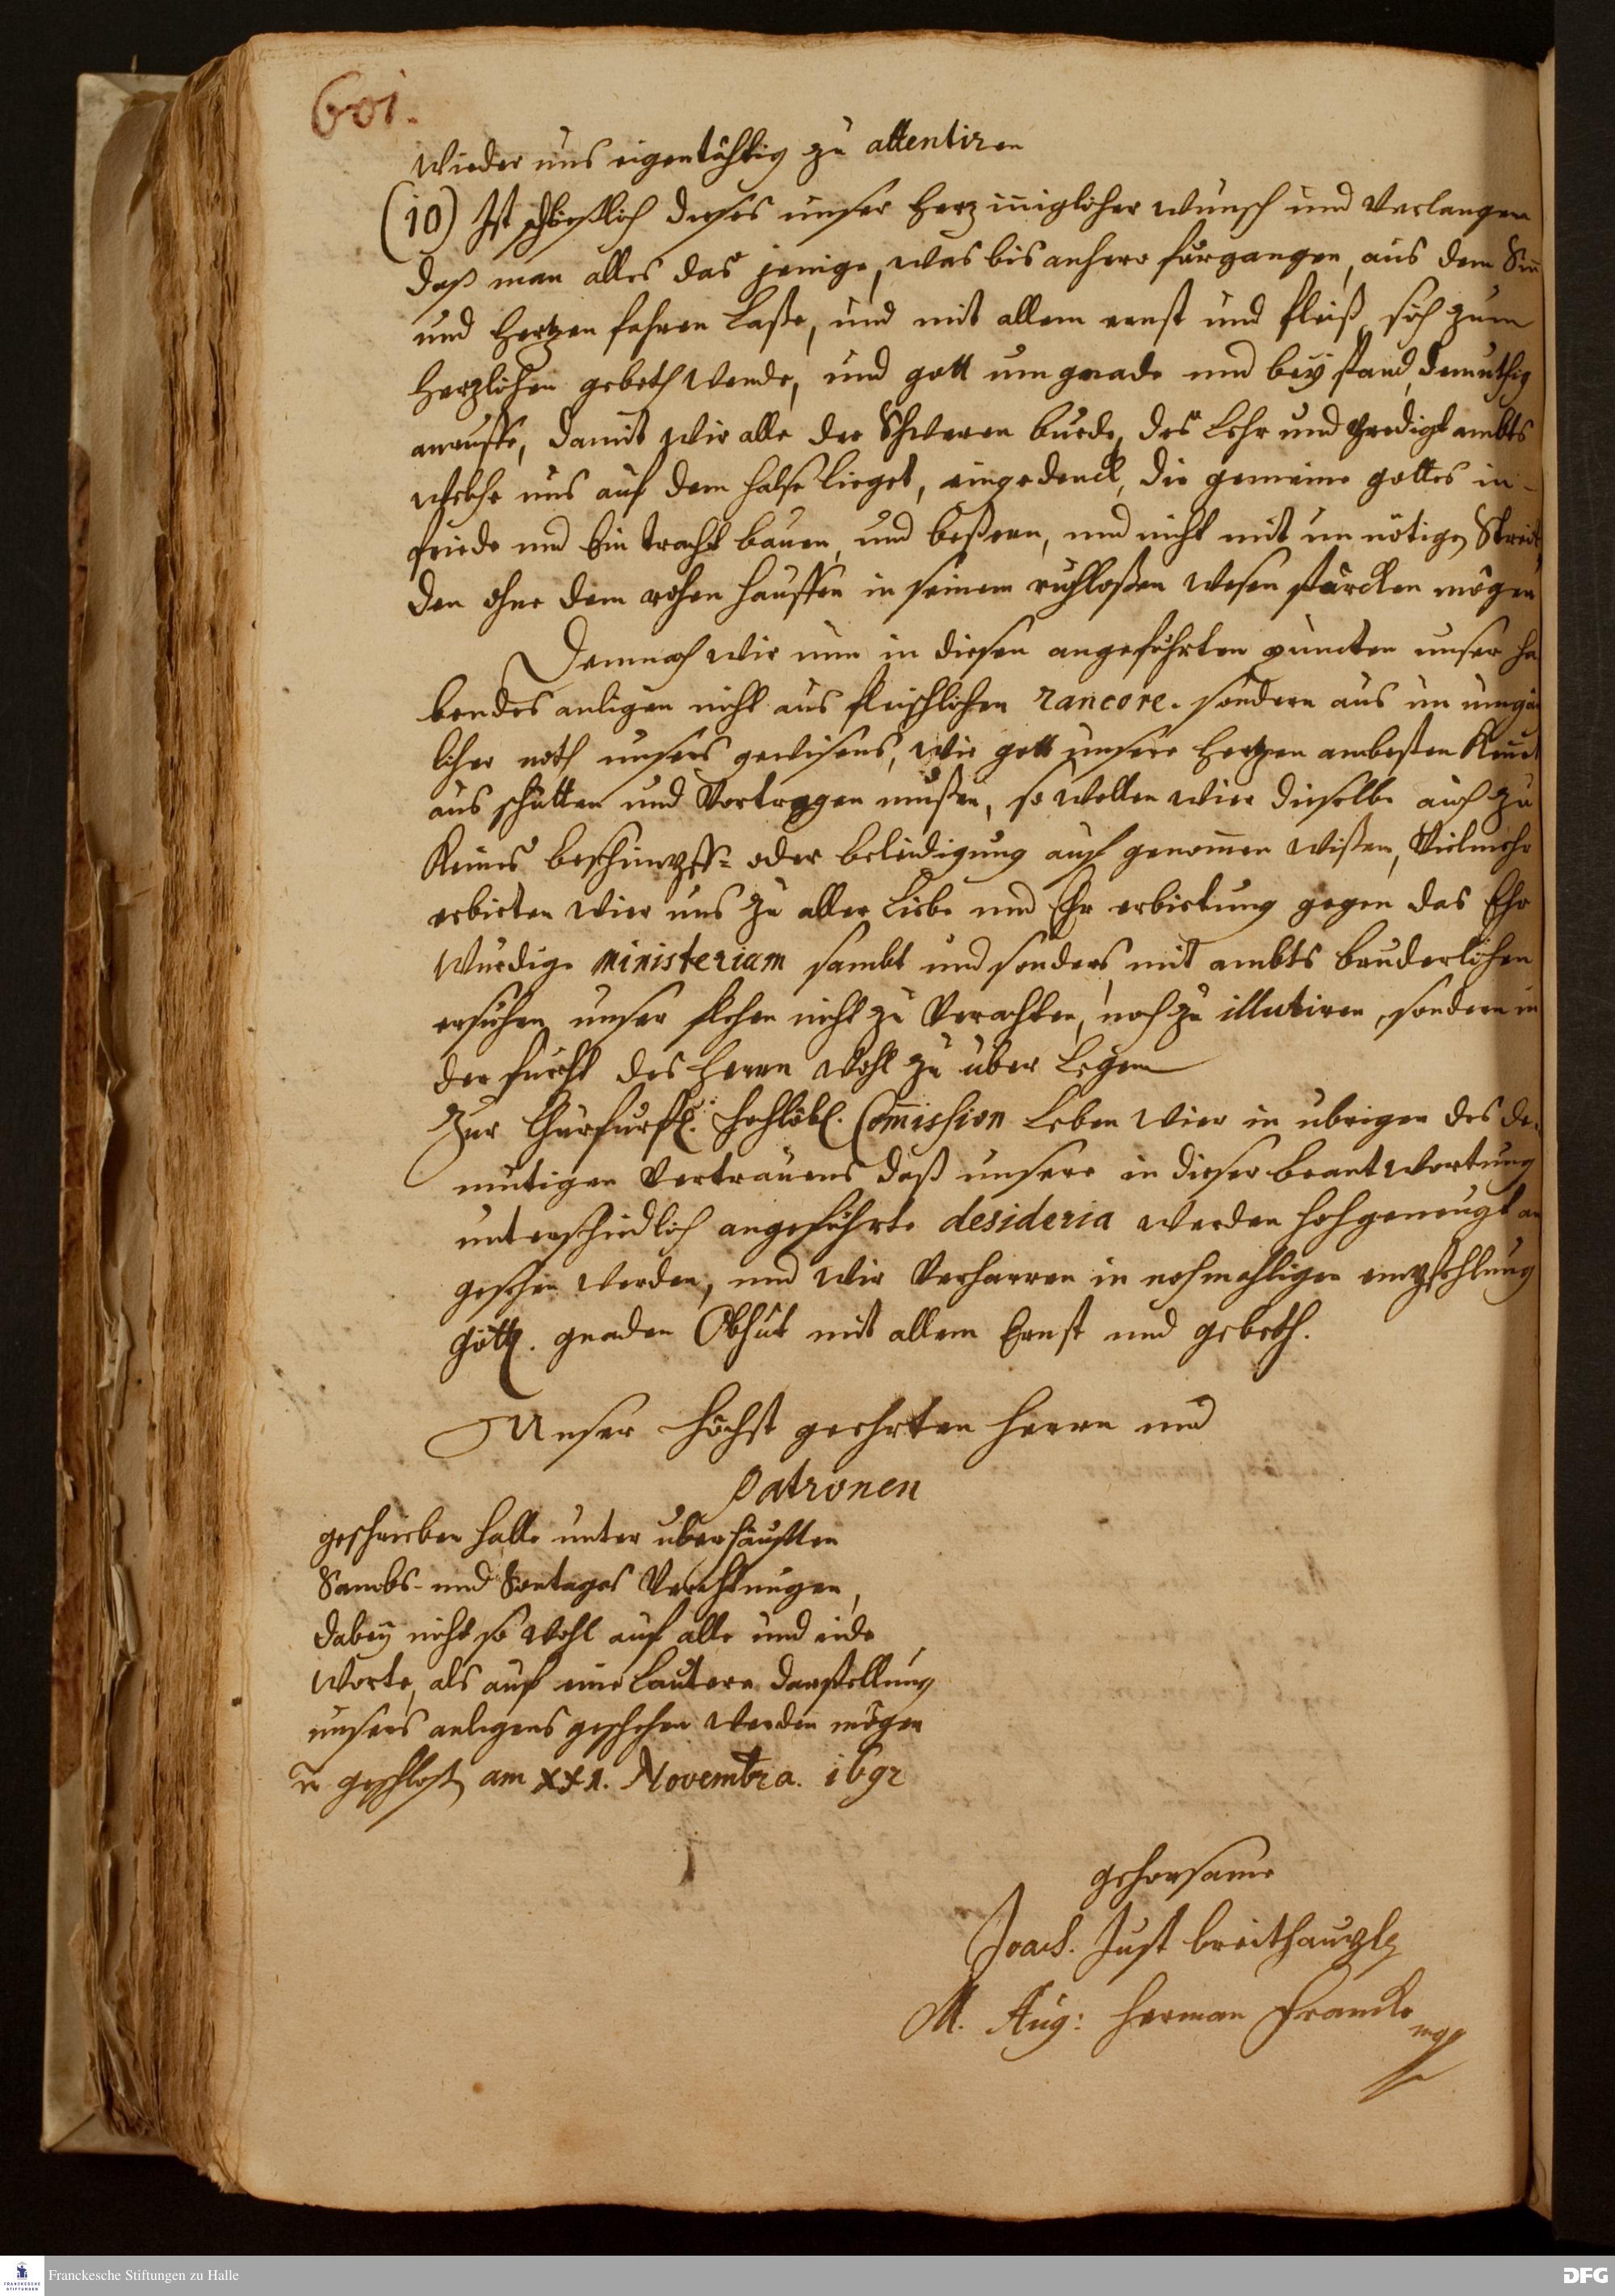 601.
wieder uns eigentähtig zu attentiren
(10) Ist schließlich dieses unser Herz inniglicher wunsch und Verlangen
daß man alles das jenige, was bis anhero furgangen, aus dem Siñ
und Hertzen fahren laße, und mit allem ernst und fleiß sich zum
Herzlichen gebeth wende, und gott um gnade und beÿ stand, demuthig
anruffe, damit wir alle der Schweren burde, des Lehr und Predigt ambts
welche uns auf dem halse lieget, eingedenck, die gemeine gottes in
friede und Ein tracht bauen, und beßern, und nicht mit un nötigen Streit
den ohne dem rohen hauffen in seinem ruchloßen wesen stärcken mögen
Demnach wir nun in diesen angeführten puncten unser ha
bendes anligen nicht aus fleischlichen rancore. sondern aus un umgän
licher noth unsers gewißens, wie gott unsere Hertzen ambesten Kennet
aus schütten und Vortragen mußen, so wollen wier dieselbe auch zu
Keines beschimpff= oder beleidigung auf genom̄en wißen, Vielmehr
erbieten wier uns zu aller Liebe und Ehr erbietung gegen das Ehr
würdige Ministerium sambt und sonders, mit ambts bruderlichen
ersuchen unser flehen nicht zu Verachten, noch zu illudiren, sondern in
der furcht des Herrn wohl zu über legen
Zur Churfurstl. Hochlöbl. Com̄ission leben wier in ubrigen des de-
mutigen Vertrauens daß unsere in dieser beantwortung
unterschiedlich angeführte desideria werden hochgeneugt an
gesehen werden, und wir Verharren in nochmahliger empfehlung
Göttl. gnaden Obhut mit allem Ernst und gebeth.
Unser Höchst geehrten Herrn und
Patronen
geschrieben Halle unter uberhäufften
Sonnabs- und Sontages Verichtungen,
dabeÿ nicht so wohl auf alle und iede
Worte, als auf eine lautere darstellung
unsers anligens gesehen werden mögen
geschloß am XXI. Novembra. 1692
gehorsame
Joach. Just Breithaupt
M. Aug: Herman Francke
mpp
Franckesche Stiftungen zu Halle
FRANCKESCHE
STIFTUNGEN
DFG